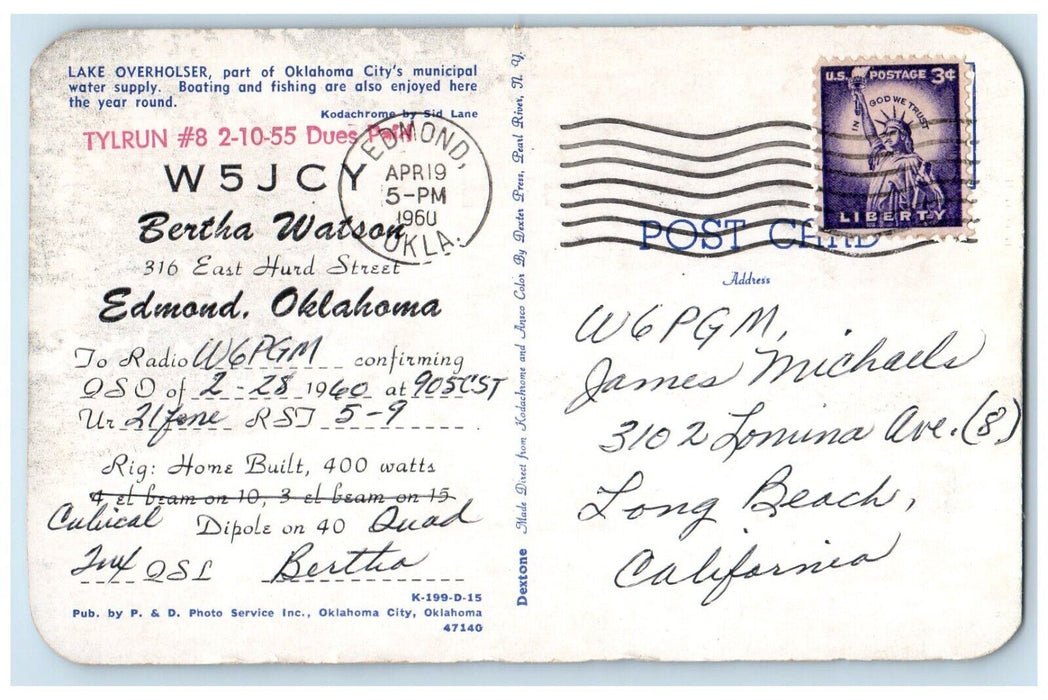 LAKE OVERHOLSER, part of Oklahoma City's municipal
water supply. Boating and fishing are also enjoyed here
the year round.
Kodachrome by Sid Lane
TYLRUN #8 2-10-55 Dues Paid
W5JCY
Bertha Watson
316 East Hurd Street
Edmond, Oklahoma
To Radio W6PGM confirming
QSO of 2-28 1960 at 905CST
Ur 21 fone RST 5-9
Rig: Home Built, 400 watts
4 el beam on 10, 3 el beam on 15
Cubical Dipole on 40 Quad
QSL Bertha
K-199-D-15
Pub. by P. & D. Photo Service Inc., Oklahoma City, Oklahoma
47140
EDMOND,
APR 19
5-PM
1960
OKLA.
Dextone Made Direct from Kodachrome and Ansco Color By Dexter Press, Pearl River, N. Y.
U.S. POSTAGE 3¢
IN GOD WE TRUST
LIBERTY
POST CARD
Address
W6PGM,
James Michaels
3102 Lomina Ave. (8)
Long Beach,
California